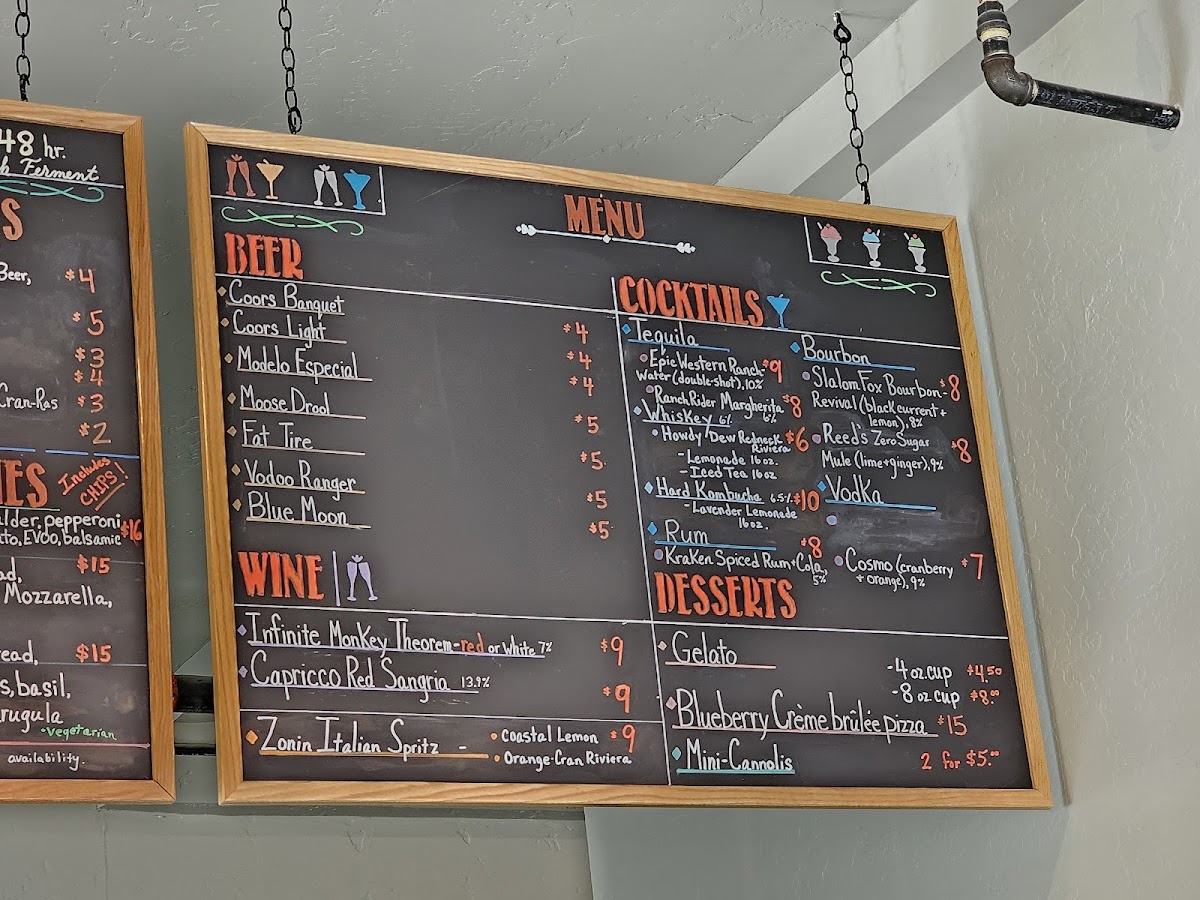 48 hr.
Ferment
S
Beer, $4
$5
$3
$4
Cran-Ras $3
$2
IES Includes
CHIPS!
alder, pepperoni,
tto, EVOO, balsamic $16
ad, $15
Mozzarella,
read, $15
s, basil,
rugula
•vegetarian
availability.
MENU
BEER
Coors Banquet $4
Coors Light $4
Modelo Especial $4
Moose Drool $5
Fat Tire $5
Vodoo Ranger $5
Blue Moon $5
WINE
Infinite Monkey Theorem-red or white 7% $9
Capricco Red Sangria 13.9% $9
Zonin Italian Spritz - • Coastal Lemon $9
• Orange-Cran Riviera
COCKTAILS
Tequila
Epic Western Ranch- $9
Water (double-shot), 10%
Ranch Rider Margherita $8
6%
Whiskey 6%
• Howdy/Dew Redneck $6
Riviera
-Lemonade 16 oz.
-Iced Tea 16 oz
Hard Kombucha 6.5% $10
-Lavender Lemonade
16 oz.
Rum $8
Kraken Spiced Rum+Cola,
5%
Bourbon
Slalom Fox Bourbon- $8
Revival (black current +
lemon), 8%
Reed's Zero Sugar $8
Mule (lime+ginger), 9%
Vodka
Cosmo (cranberry $7
+ orange), 9%
DESSERTS
Gelato
-4 oz.cup $4.50
-8 oz cup $8.00
Blueberry Crème brûlée pizza $15
Mini-Cannolis 2 for $5.00